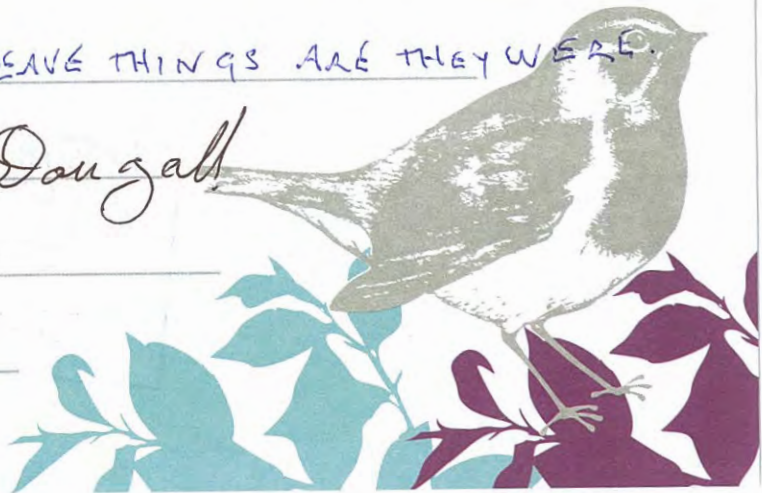 EAVE THINGS ARE THEY WERE.
Dougall